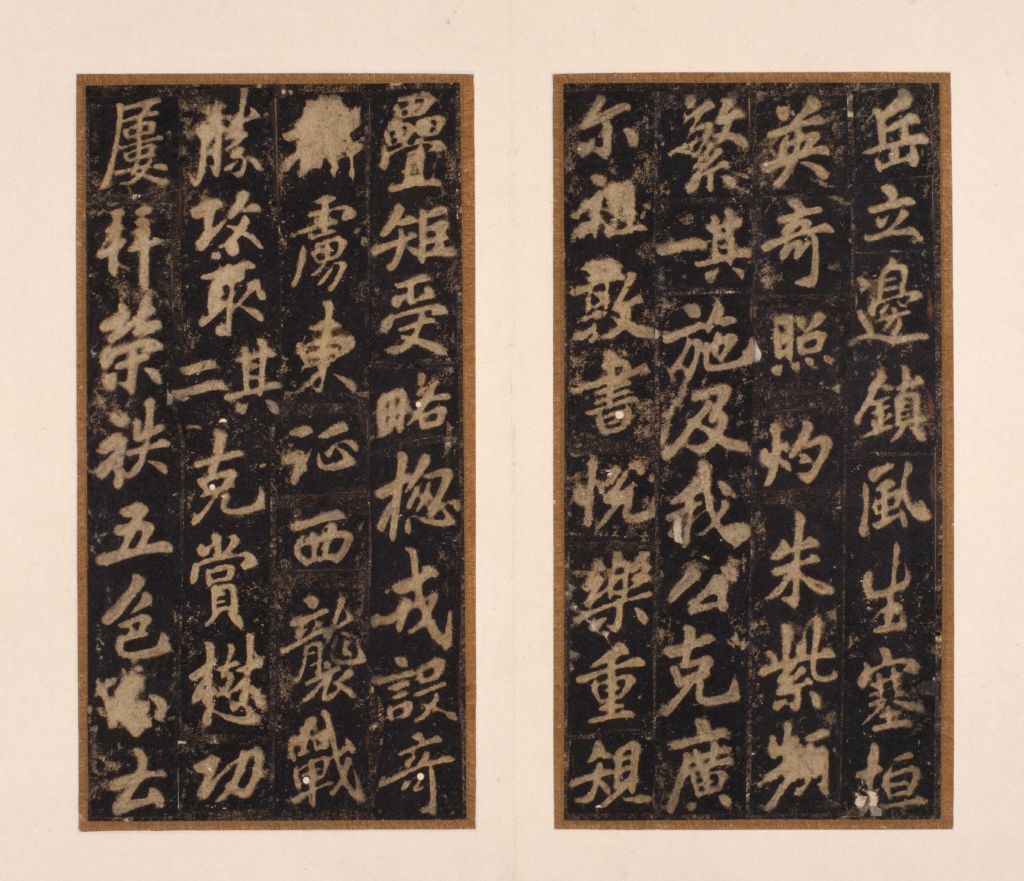 岳立邊鎮風生塞垣
英奇照灼朱紫頻
繁其一施及我公克廣
尔祖敦書悅樂重規
疊矩受略揔戎設奇
虜東征西襲戰
勝攻取其二克賞懋功
屢拜榮袟五色